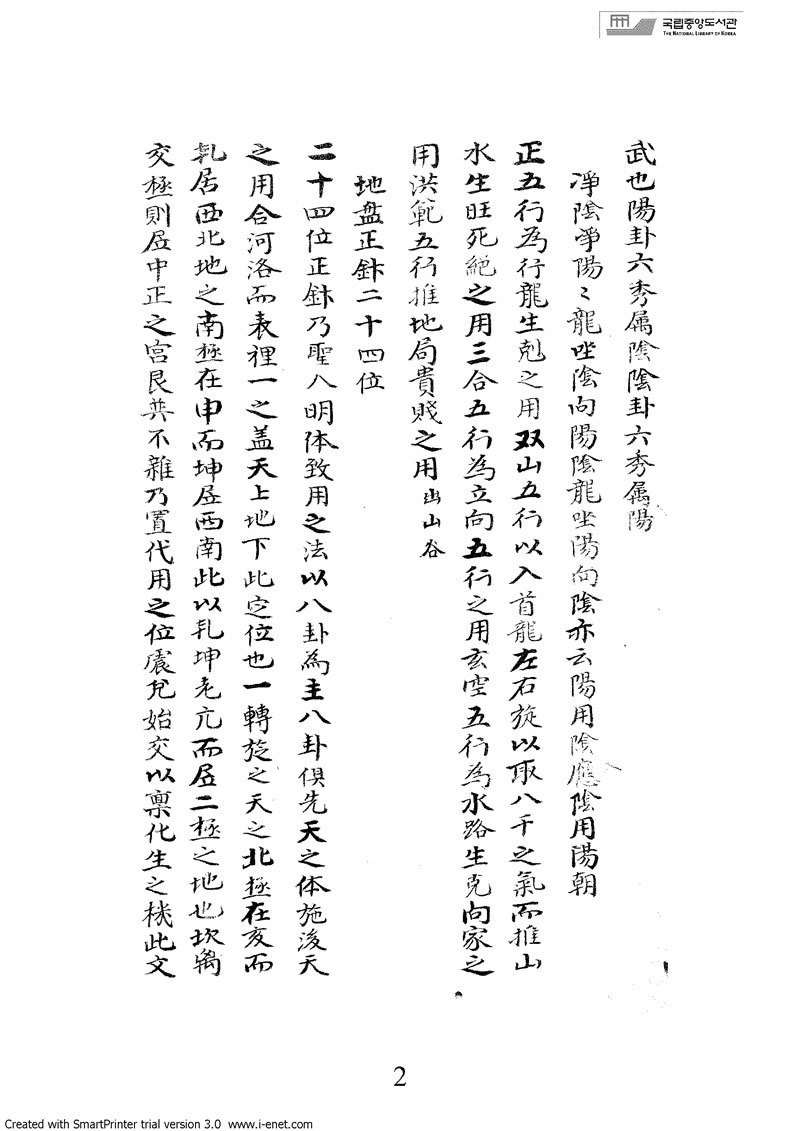 국립중앙도서관
THE NATIONAL LIBRARY OF KOREA
武也陽卦六秀属陰陰卦六秀属陽
淨陰淨陽〻龍坐陰向陽陰龍坐陽向陰亦云陽用陰應陰用陽朝
正五行為行龍生剋之用双山五行以入首龍左右旋以取八干之氣而推山
水生旺死絕之用三合五行為立向五行之用玄空五行為水路生克向家之
用洪範五行推地局貴賤之用出山谷
地盘正針二十四位
二十四位正針乃聖人明体致用之法以八卦為主八卦俱先天之体施后天
之用合河洛而表裡一之盖天上地下此定位也一轉旋之天之北極在亥而
乹居西北地之南極在申而坤居西南此以乹坤老亢而居二極之地也坎离
交極則居中正之宮艮巽不雜乃置代用之位震兌始交以禀化生之機此文
2
Created with SmartPrinter trial version 3.0 www.i-enet.com